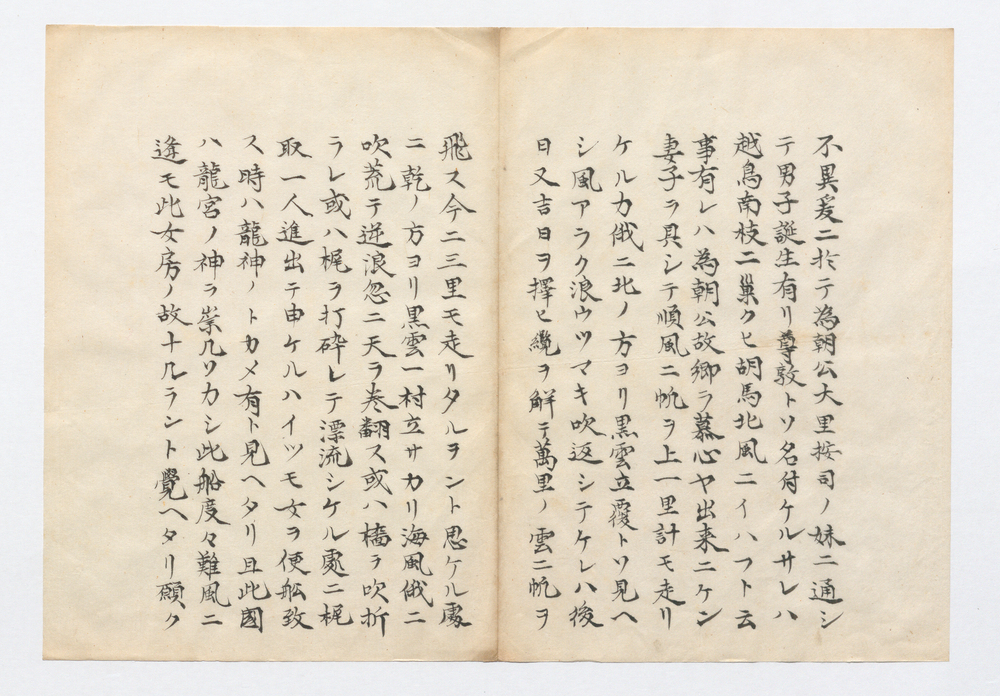 不異爰ニ於テ為朝公大里按司ノ妹ニ通シ
テ男子誕生有リ尊敦トソ名付ケルサレハ
越鳥南枝ニ巣クヒ胡馬北風ニイハフト云
事有レハ為朝公故郷ヲ慕心ヤ出来ニケン
妻子ヲ具シテ順風ニ帆ヲ上一里計モ走リ
ケルカ俄ニ北ノ方ヨリ黒雲立覆トソ見ヘ
シ風アラク浪ウツマキ吹返シテケレハ後
日又吉日ヲ擇ヒ纜ヲ解テ萬里ノ雲ニ帆ヲ
飛ス今二三里モ走リタルラント思ケル處
ニ乾ノ方ヨリ黒雲一村立サカリ海風俄ニ
吹荒テ逆浪忽ニ天ヲ巻翻ス或ハ檣ヲ吹折
ラレ或ハ梶ヲ打砕レテ漂流シケル處ニ梶
取一人進出テ申ケルハイツモ女ヲ便舩致
ス時ハ龍神ノトカメ有ト見ヘタリ且此國
ハ龍宮ノ神ヲ崇凡ソカシ此船度々難風ニ
逢モ此女房ノ故ナルラント覺ヘタリ願ク